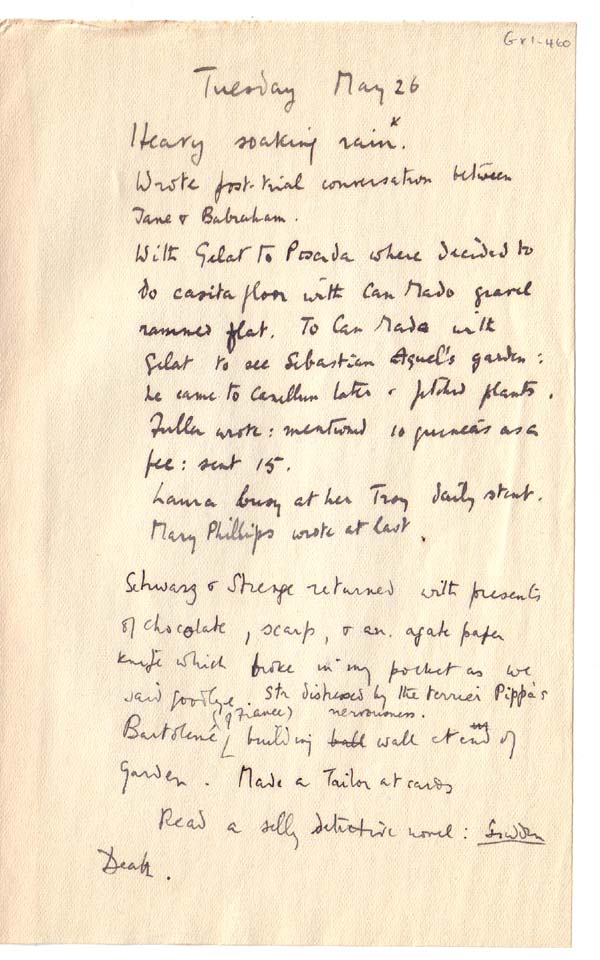 Gr1-460
Tuesday May 26
Heavy soaking rain x.
Wrote post-trial conversation between
Jane & Babraham.
With Gelat to Posada where decided to
do casita floor with Can Mado gravel
rammed flat. To Can Mado with
Gelat to see Sebastian Aguel's garden:
he came to Canellun later & fetched plants.
Fuller wrote: mentioned 10 guineas as a
fee: sent 15.
Laura busy at her Troy daily stent.
Mary Phillips wrote at last.
Schwarz & Strenge returned with presents
of chocolate, scarf, & an agate paper
knife which broke in my pocket as we
said goodbye. Str distressed by the terrier Pippa's
nervousness.
Bartolemé (of Fiance) building ball wall at end of
Garden. Made a Tailor at cards
Read a silly detective novel: Sudden
Death.